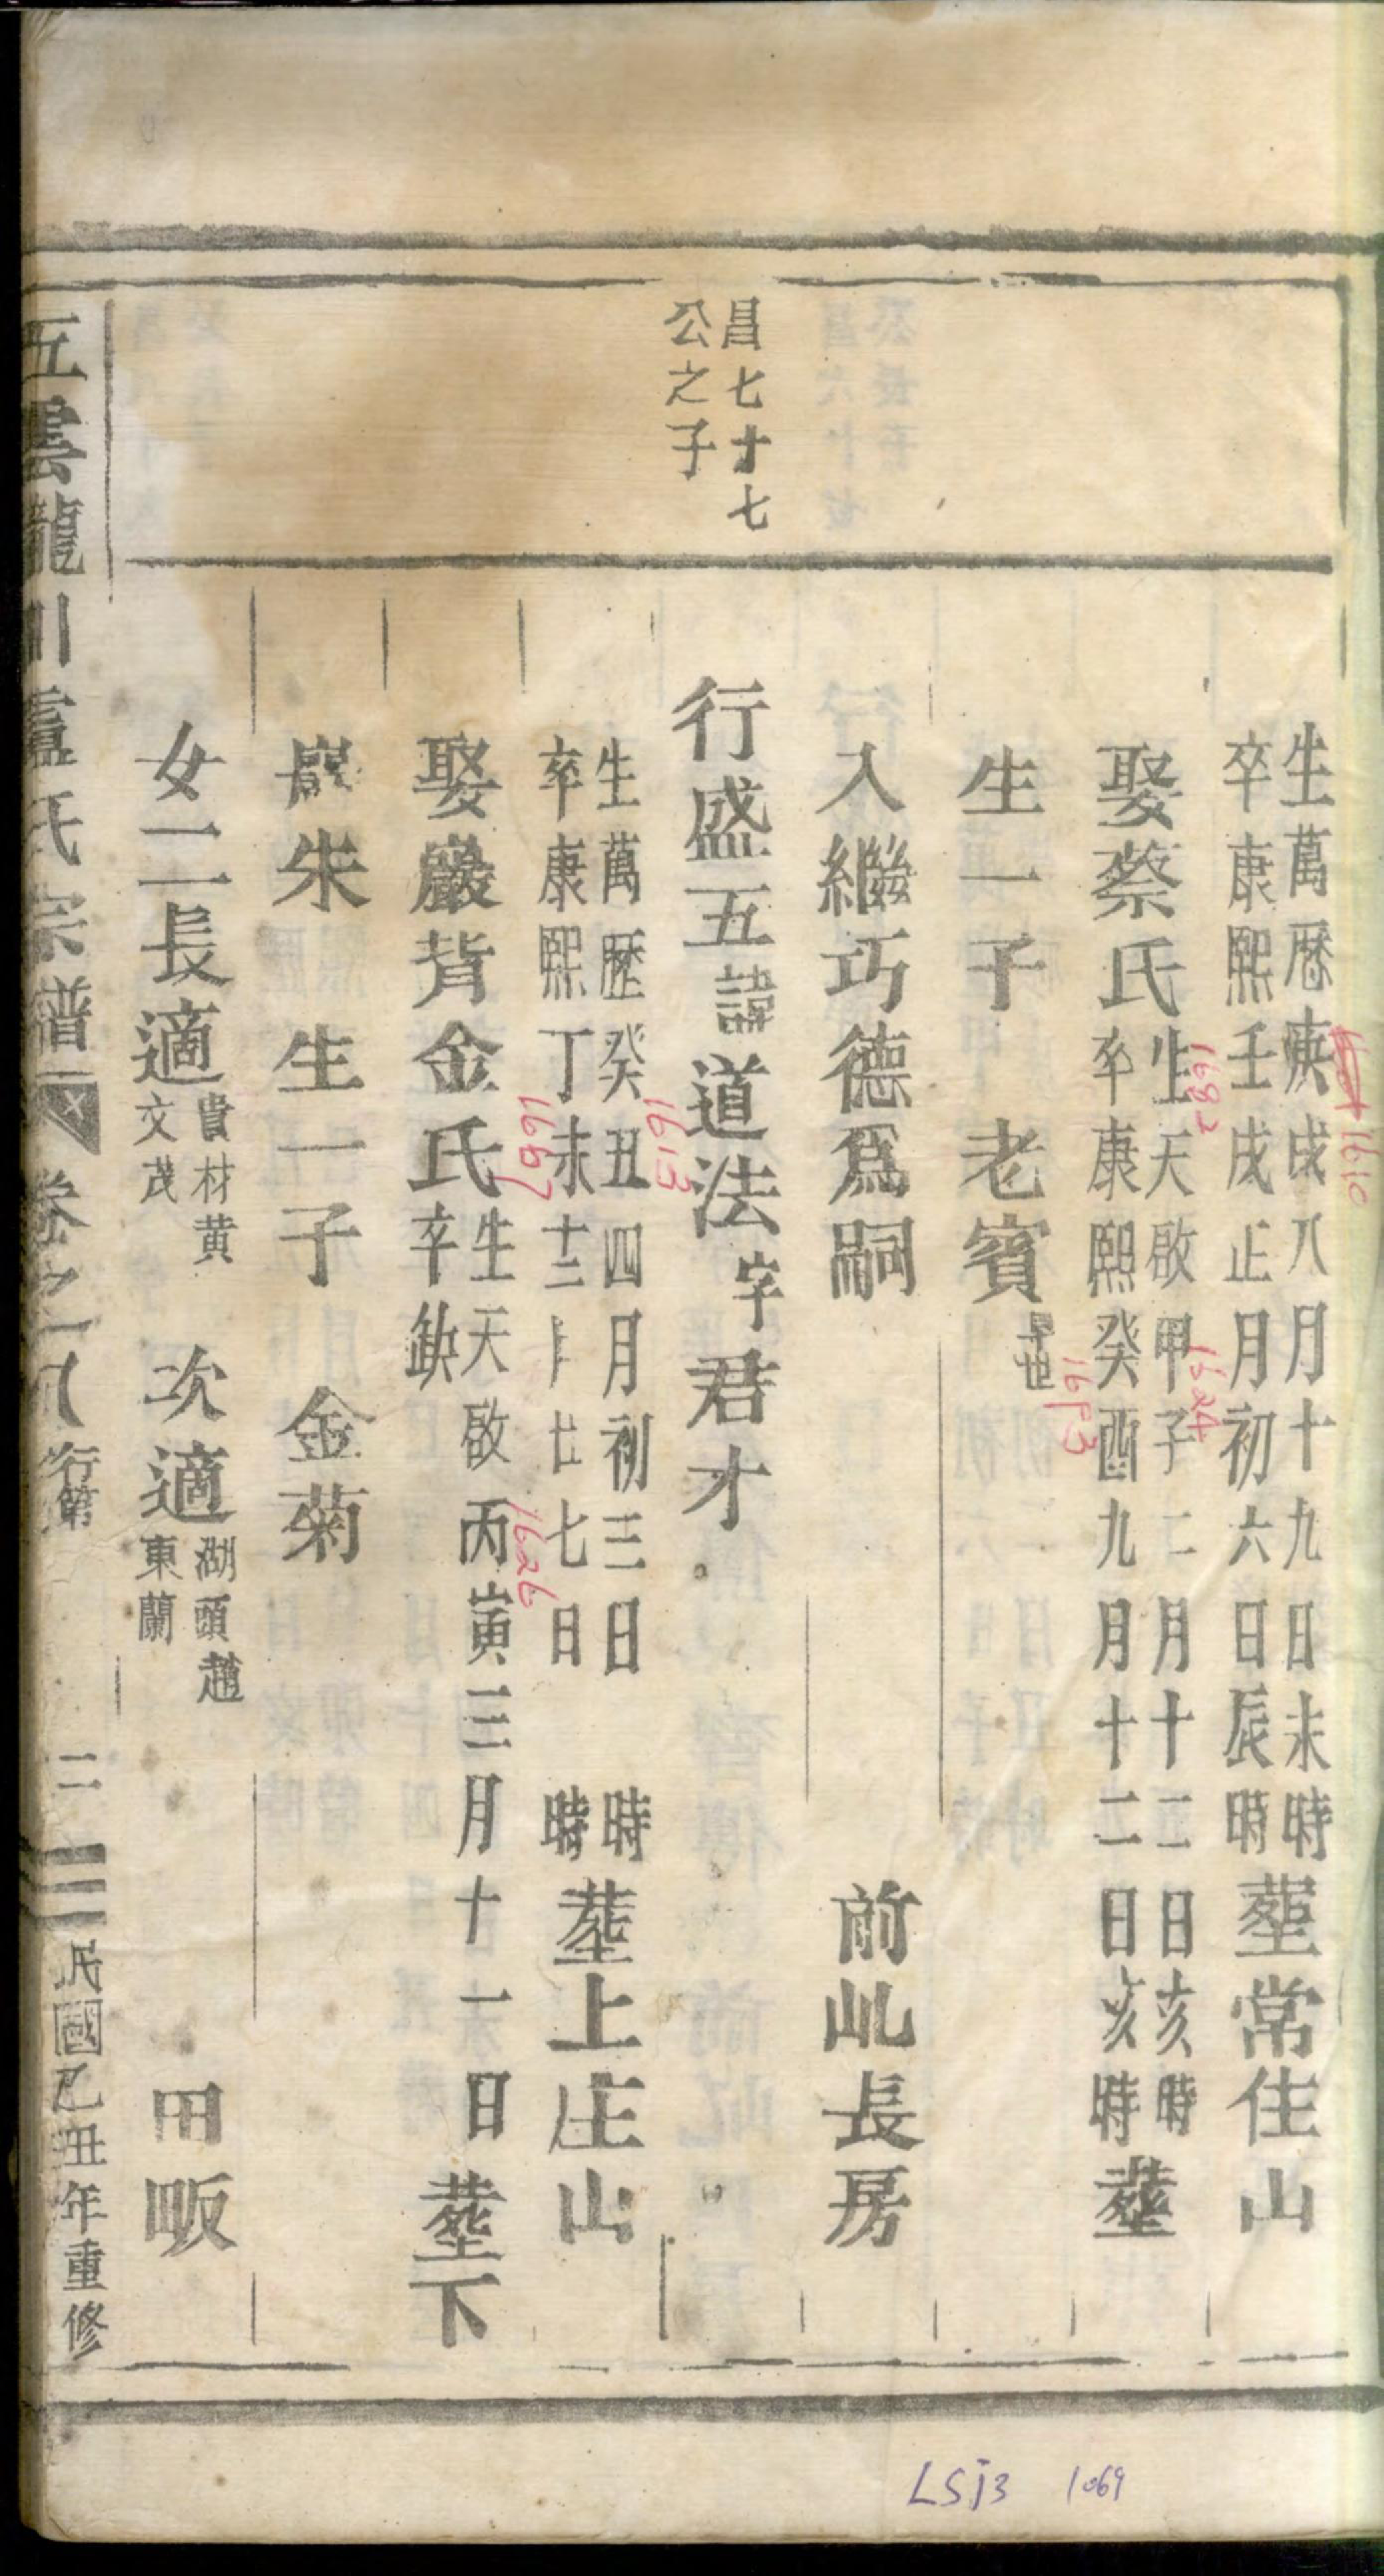 生萬歷庚戌八月十九日未時
卒康熙壬戌正月初六日辰時
塟常住山
1610
1682
娶蔡氏
生天啟甲子二月十三日亥時
卒康熙癸酉九月十二日亥時
塟
1624
1693
生一子 老賓 早世
入繼巧德爲嗣 前屾長房
昌七十七
公之子
行盛五諱道法字君才
生萬歷癸丑四月初三日 時
卒康熙丁未十二月廿七日 時
塟上庄山
1613
1667
娶巖背金氏
生天啟丙寅三月十一日
卒缺
塟下
1626
巖朱 生一子 金菊
女二長適
貴材黄
文茂
次適
湖頭趙
東蘭
田畈
五雲龍川盧氏宗譜 卷之八 行第 二 民國乙丑年重修
LSj3 1069